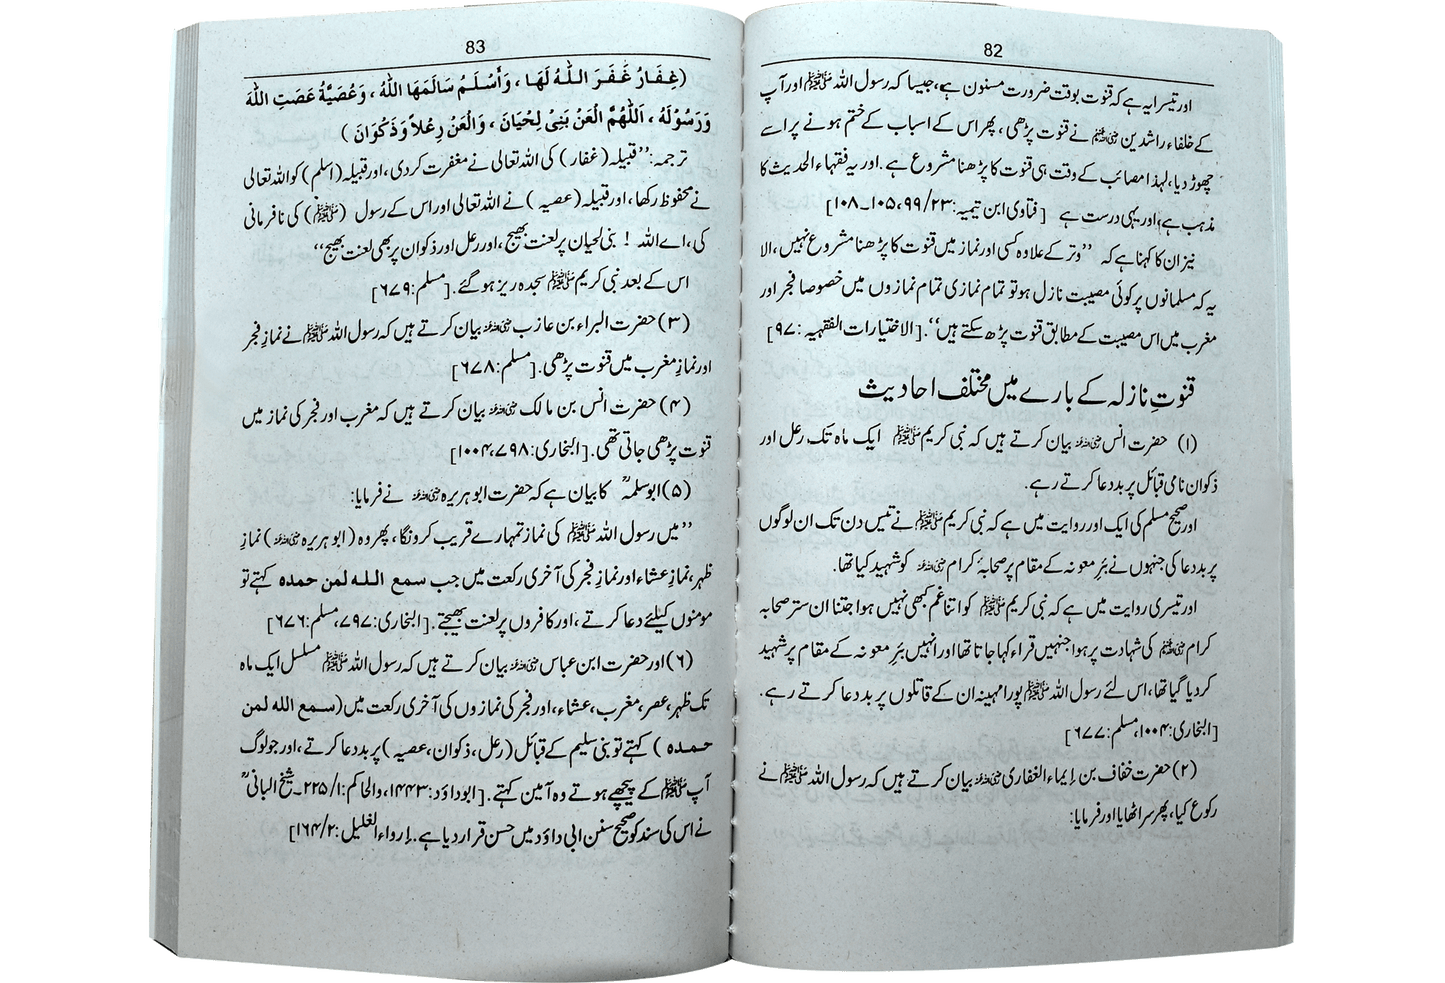 82
اور تیسرا یہ ہے کہ قنوت بوقت ضرورت مسنون ہے، جیسا کہ رسول اللہ ﷺ اور آپ
کے خلفاء راشدین رضی اللہ عنہم نے قنوت پڑھی، پھر اس کے اسباب کے ختم ہونے پر اسے
چھوڑ دیا، لہذا مصائب کے وقت ہی قنوت کا پڑھنا مشروع ہے۔ اور یہ فقہاء الحدیث کا
مذہب ہے، اور یہی درست ہے [فتاوی ابن تیمیہ: ۲۳/۹۹، ۱۰۵۔۱۰۸]
نیز ان کا کہنا ہے کہ ’’وتر کے علاوہ کسی اور نماز میں قنوت کا پڑھنا مشروع نہیں، الا
یہ کہ مسلمانوں پر کوئی مصیبت نازل ہو تو تمام نمازی تمام نمازوں میں خصوصا فجر اور
مغرب میں اس مصیبت کے مطابق قنوت پڑھ سکتے ہیں‘‘۔ [الاختیارات الفقہیہ: ۹۷]
قنوتِ نازلہ کے بارے میں مختلف احادیث
(۱) حضرت انس رضی اللہ عنہ بیان کرتے ہیں کہ نبی کریم ﷺ ایک ماہ تک رعل اور
ذکوان نامی قبائل پر بددعا کرتے رہے۔
اور صحیح مسلم کی ایک اور روایت میں ہے کہ نبی کریم ﷺ نے تیس دن تک ان لوگوں
پر بددعا کی جنہوں نے بئرِ معونہ کے مقام پر صحابۂ کرام رضی اللہ عنہم کو شہید کیا تھا۔
اور تیسری روایت میں ہے کہ نبی کریم ﷺ کو اتنا غم کبھی نہیں ہوا جتنا ان ستر صحابہ
کرام رضی اللہ عنہم کی شہادت پر ہوا جنہیں قراء کہا جاتا تھا اور انہیں بئرِ معونہ کے مقام پر شہید
کر دیا گیا تھا، اس لئے رسول اللہ ﷺ پورا مہینہ ان کے قاتلوں پر بددعا کرتے رہے۔
[البخاری: ۱۰۰۴، مسلم: ۶۷۷]
(۲) حضرت خفاف بن إیماء الغفاری رضی اللہ عنہ بیان کرتے ہیں کہ رسول اللہ ﷺ نے
رکوع کیا، پھر سر اٹھایا اور فرمایا:
83
(غِفَارُ غَفَرَ اللّٰهُ لَهَا ، وَأَسْلَمُ سَالَمَهَا اللّٰهُ ، وَعُصَيَّةُ عَصَتِ اللّٰهَ
وَرَسُوْلَهُ ، اَللّٰهُمَّ الْعَنْ بَنِيْ لِحْيَانَ ، وَالْعَنْ رِعْلاً وَذَكْوَانَ )
ترجمہ: ’’قبیلہ (غفار) کی اللہ تعالی نے مغفرت کردی، اور قبیلہ (اسلم) کو اللہ تعالی
نے محفوظ رکھا، اور قبیلہ (عصیہ) نے اللہ تعالی اور اس کے رسول (ﷺ) کی نافرمانی
کی، اے اللہ ! بنی لحیان پر لعنت بھیج، اور رعل اور ذکوان پر بھی لعنت بھیج‘‘
اس کے بعد نبی کریم ﷺ سجدہ ریز ہو گئے۔ [مسلم: ۶۷۹]
(۳) حضرت البراء بن عازب رضی اللہ عنہ بیان کرتے ہیں کہ رسول اللہ ﷺ نے نمازِ فجر
اور نمازِ مغرب میں قنوت پڑھی۔ [مسلم: ۶۷۸]
(۴) حضرت انس بن مالک رضی اللہ عنہ بیان کرتے ہیں کہ مغرب اور فجر کی نماز میں
قنوت پڑھی جاتی تھی۔ [البخاری: ۷۹۸، ۱۰۰۴]
(۵) ابو سلمہؒ کا بیان ہے کہ حضرت ابو ہریرہ رضی اللہ عنہ نے فرمایا:
’’میں رسول اللہ ﷺ کی نماز تمہارے قریب کرونگا، پھر وہ (ابو ہریرہ رضی اللہ عنہ) نمازِ
ظہر، نمازِ عشاء اور نمازِ فجر کی آخری رکعت میں جب سمع اللہ لمن حمدہ کہتے تو
مومنوں کیلئے دعا کرتے، اور کافروں پر لعنت بھیجتے۔ [البخاری: ۷۹۷، مسلم: ۶۷۶]
(۶) اور حضرت ابن عباس رضی اللہ عنہ بیان کرتے ہیں کہ رسول اللہ ﷺ مسلسل ایک ماہ
تک ظہر، عصر، مغرب، عشاء، اور فجر کی نمازوں کی آخری رکعت میں (سمع اللہ لمن
حمدہ) کہتے تو بنی سلیم کے قبائل (رعل، ذکوان، عصیہ) پر بددعا کرتے، اور جو لوگ
آپ ﷺ کے پیچھے ہوتے وہ آمین کہتے۔ [ابوداؤد: ۱۴۴۳، والحاکم: ۱/۲۲۵۔ شیخ البانیؒ
نے اس کی سند کو صحیح سنن ابی داؤد میں حسن قرار دیا ہے۔ إرواء الغلیل: ۲/۱۶۴]